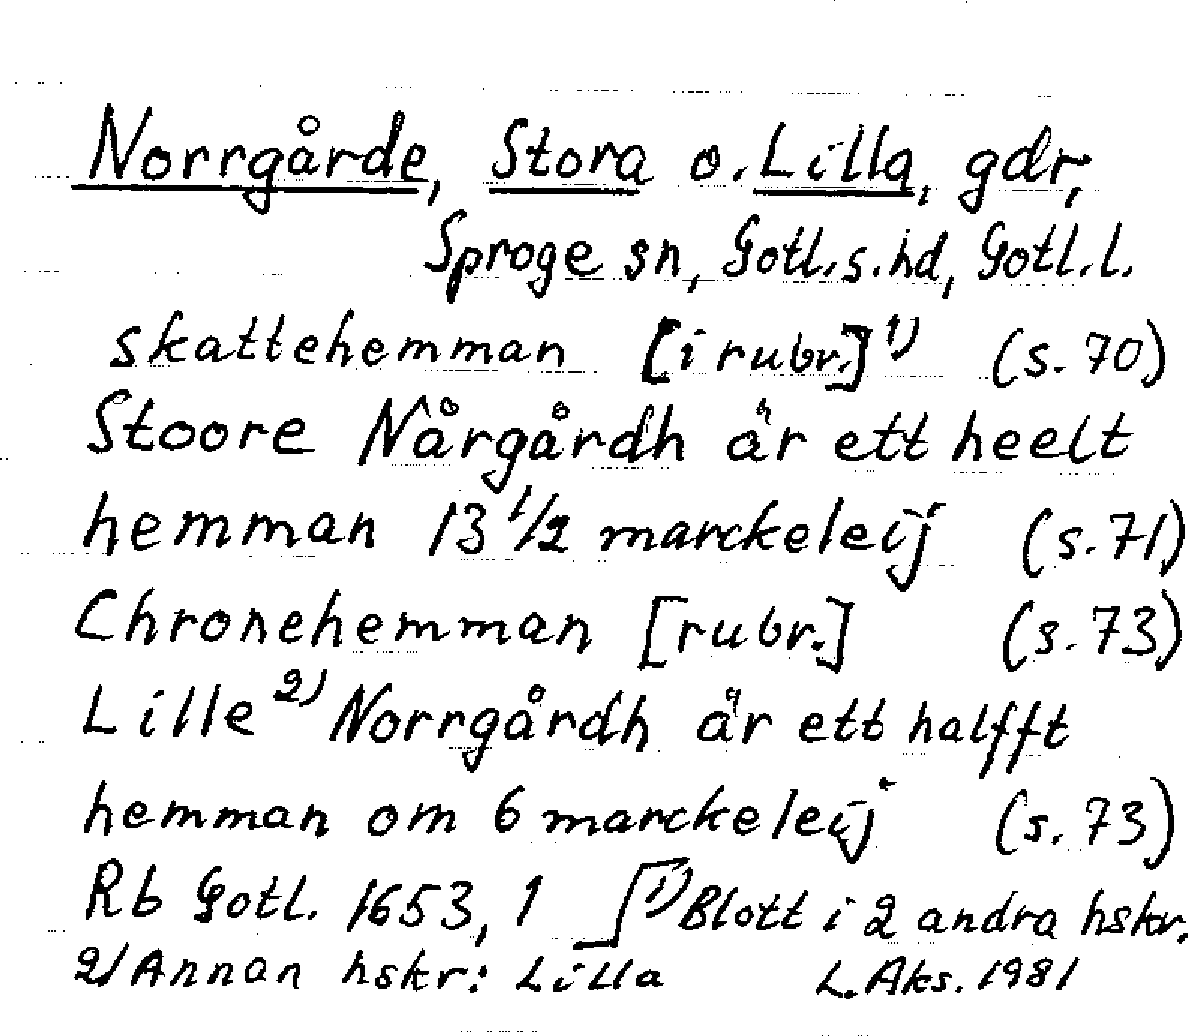 Norrgårde, Stora o. Lilla, gdr,
Sproge sn, Gotl.s.hd, Gotl.l.
skattehemman [i rubr.]1) (s. 70)
Stoore Nårgårdh är ett heelt
hemman 13 1/2 marckeleij (s. 71)
Chronehemman [rubr.] (s. 73)
Lille 2) Norrgårdh är ett halfft
hemman om 6 marckeleij (s. 73)
Rb Gotl. 1653, 1 1) Blott i 2 andra hskr.
2) Annan hskr: Lilla L. Aks. 1981